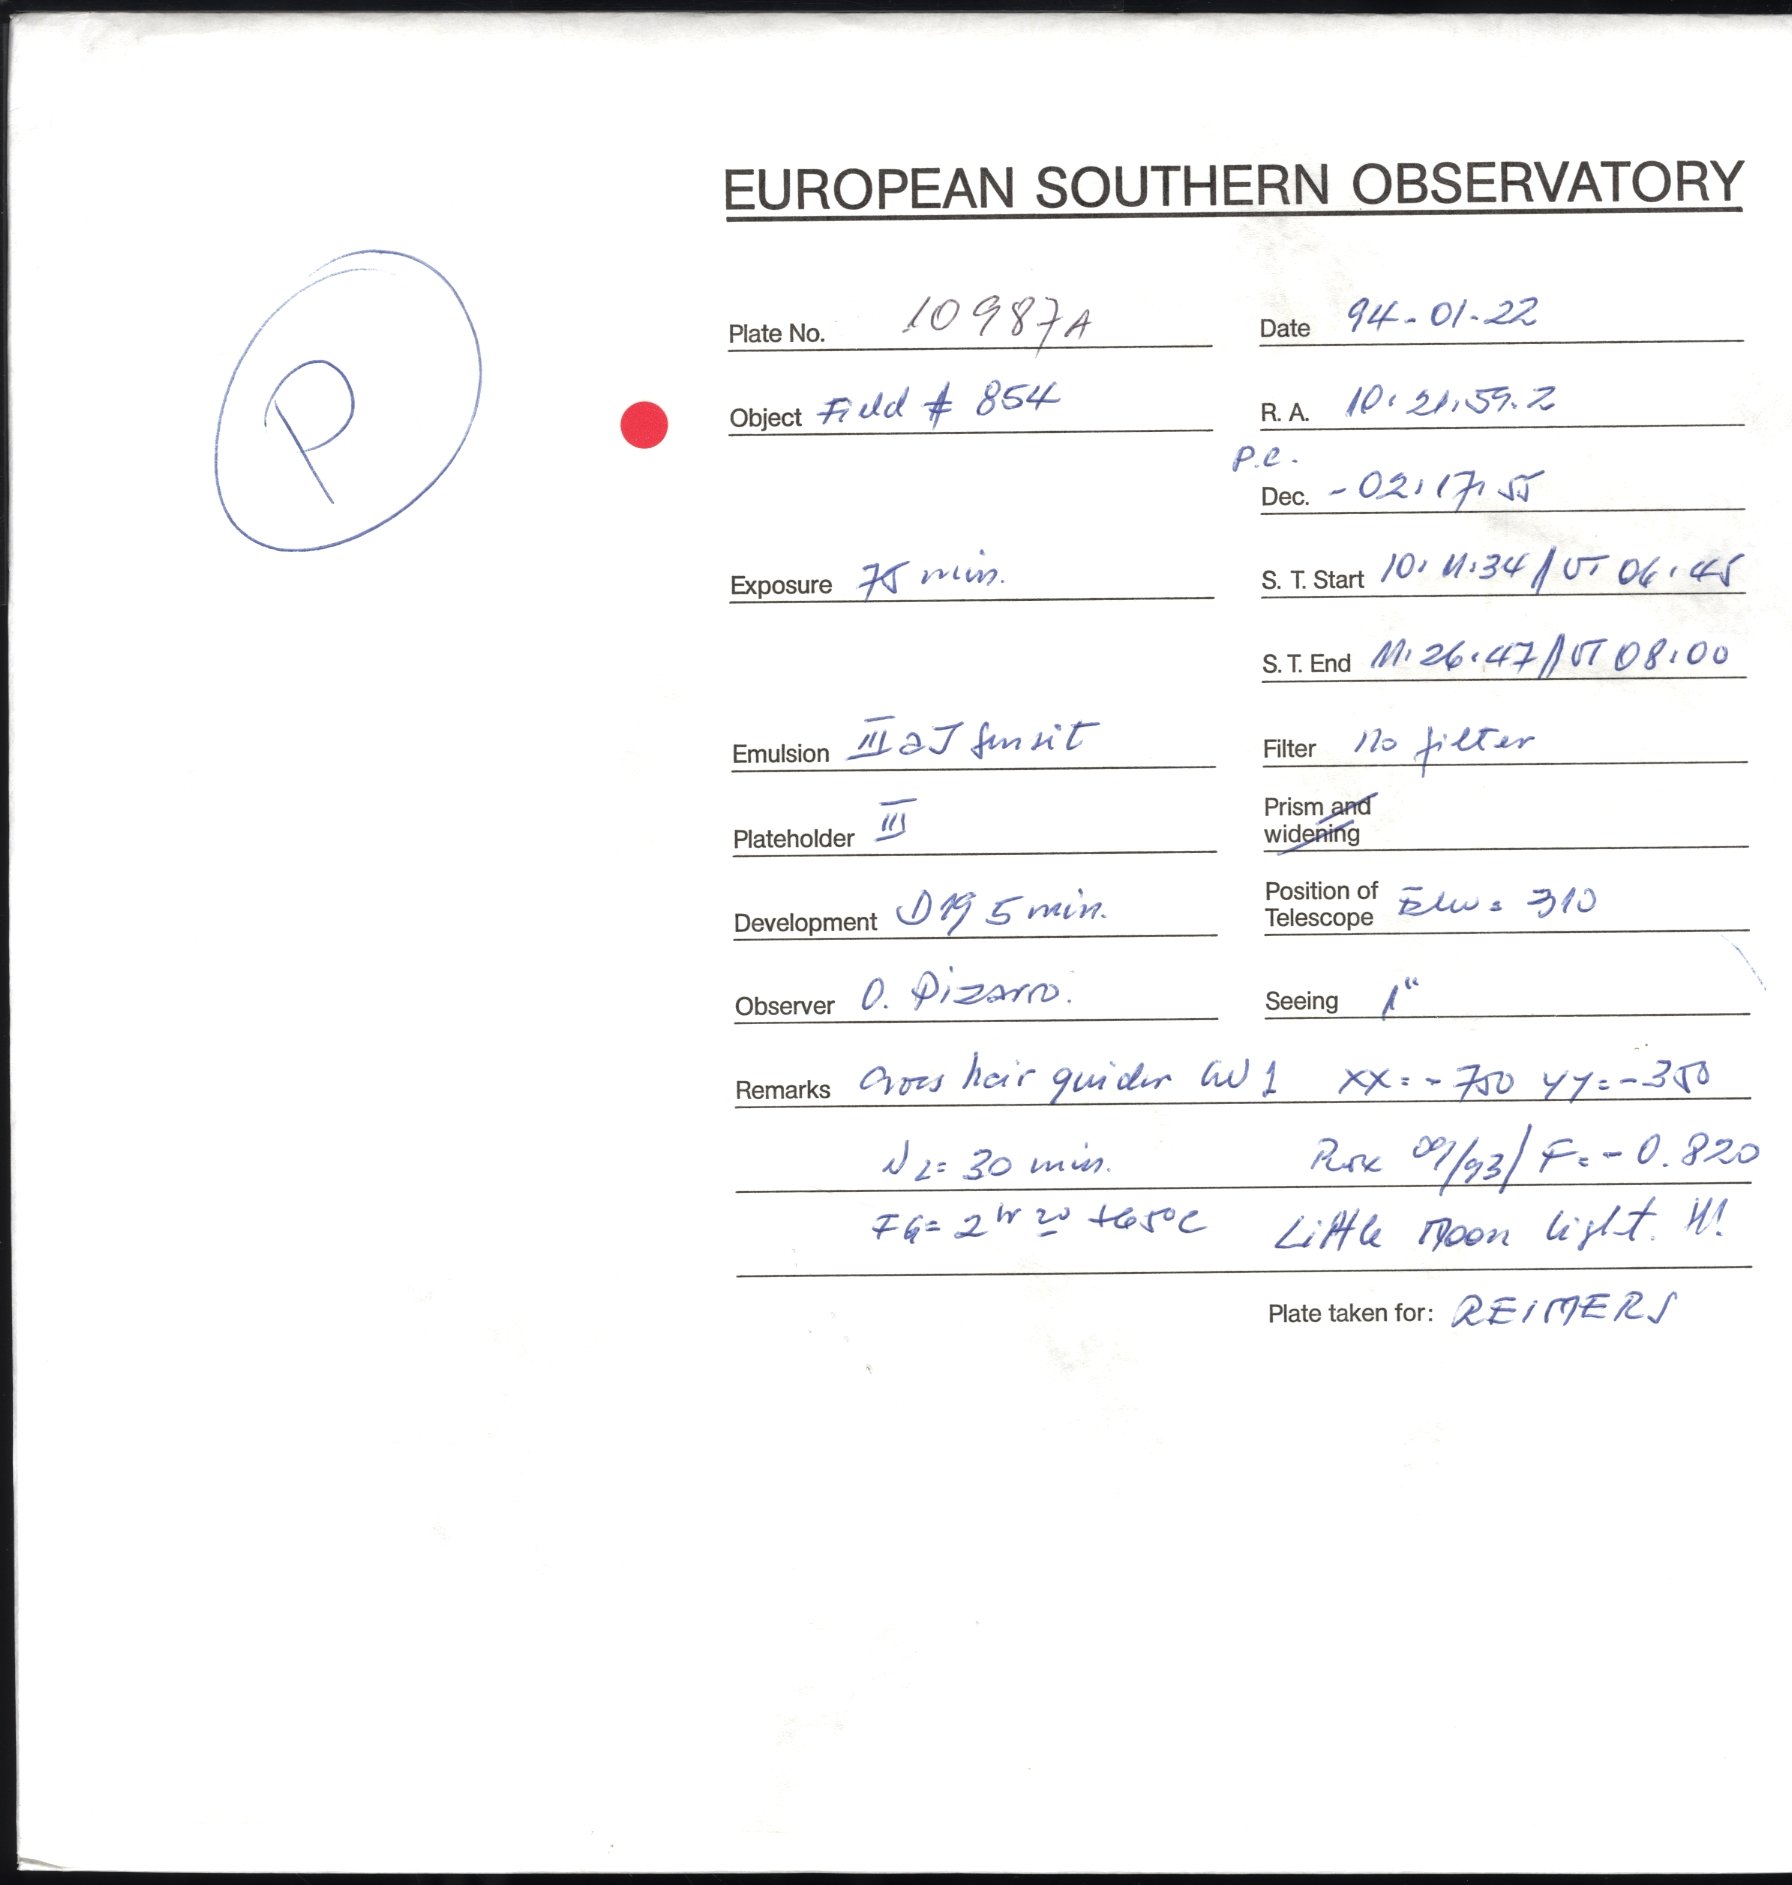 EUROPEAN SOUTHERN OBSERVATORY
P
Plate No. 10987A
Date 94-01-22
Object Field # 854
R. A. 10:21:59.2
P.C.
Dec. -02:17:55
Exposure 75 min.
S. T. Start 10:11:34 // UT 06:45
S. T. End 11:26:47 // UT 08:00
Emulsion III aJ sensit
Filter no filter
Plateholder III
Prism and
widening
Development D19 5 min.
Position of
Telescope = 310
Observer O. Pizarro.
Seeing 1"
Remarks Cross hair guider GW 1 xx=-750 yy=-350
N2= 30 min. 09/93/ F=-0.820
FG= 2hr 20 +65°C Little Moon light. !!!
Plate taken for: REIMERS